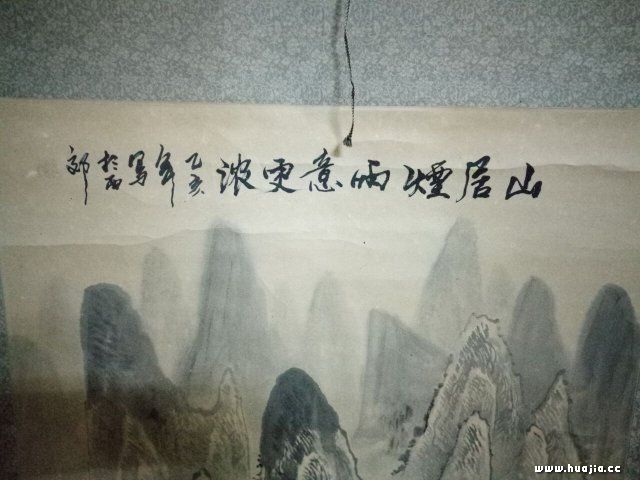 山居煙雨意更濃 乙亥年寫於西郊
www.huajia.cc